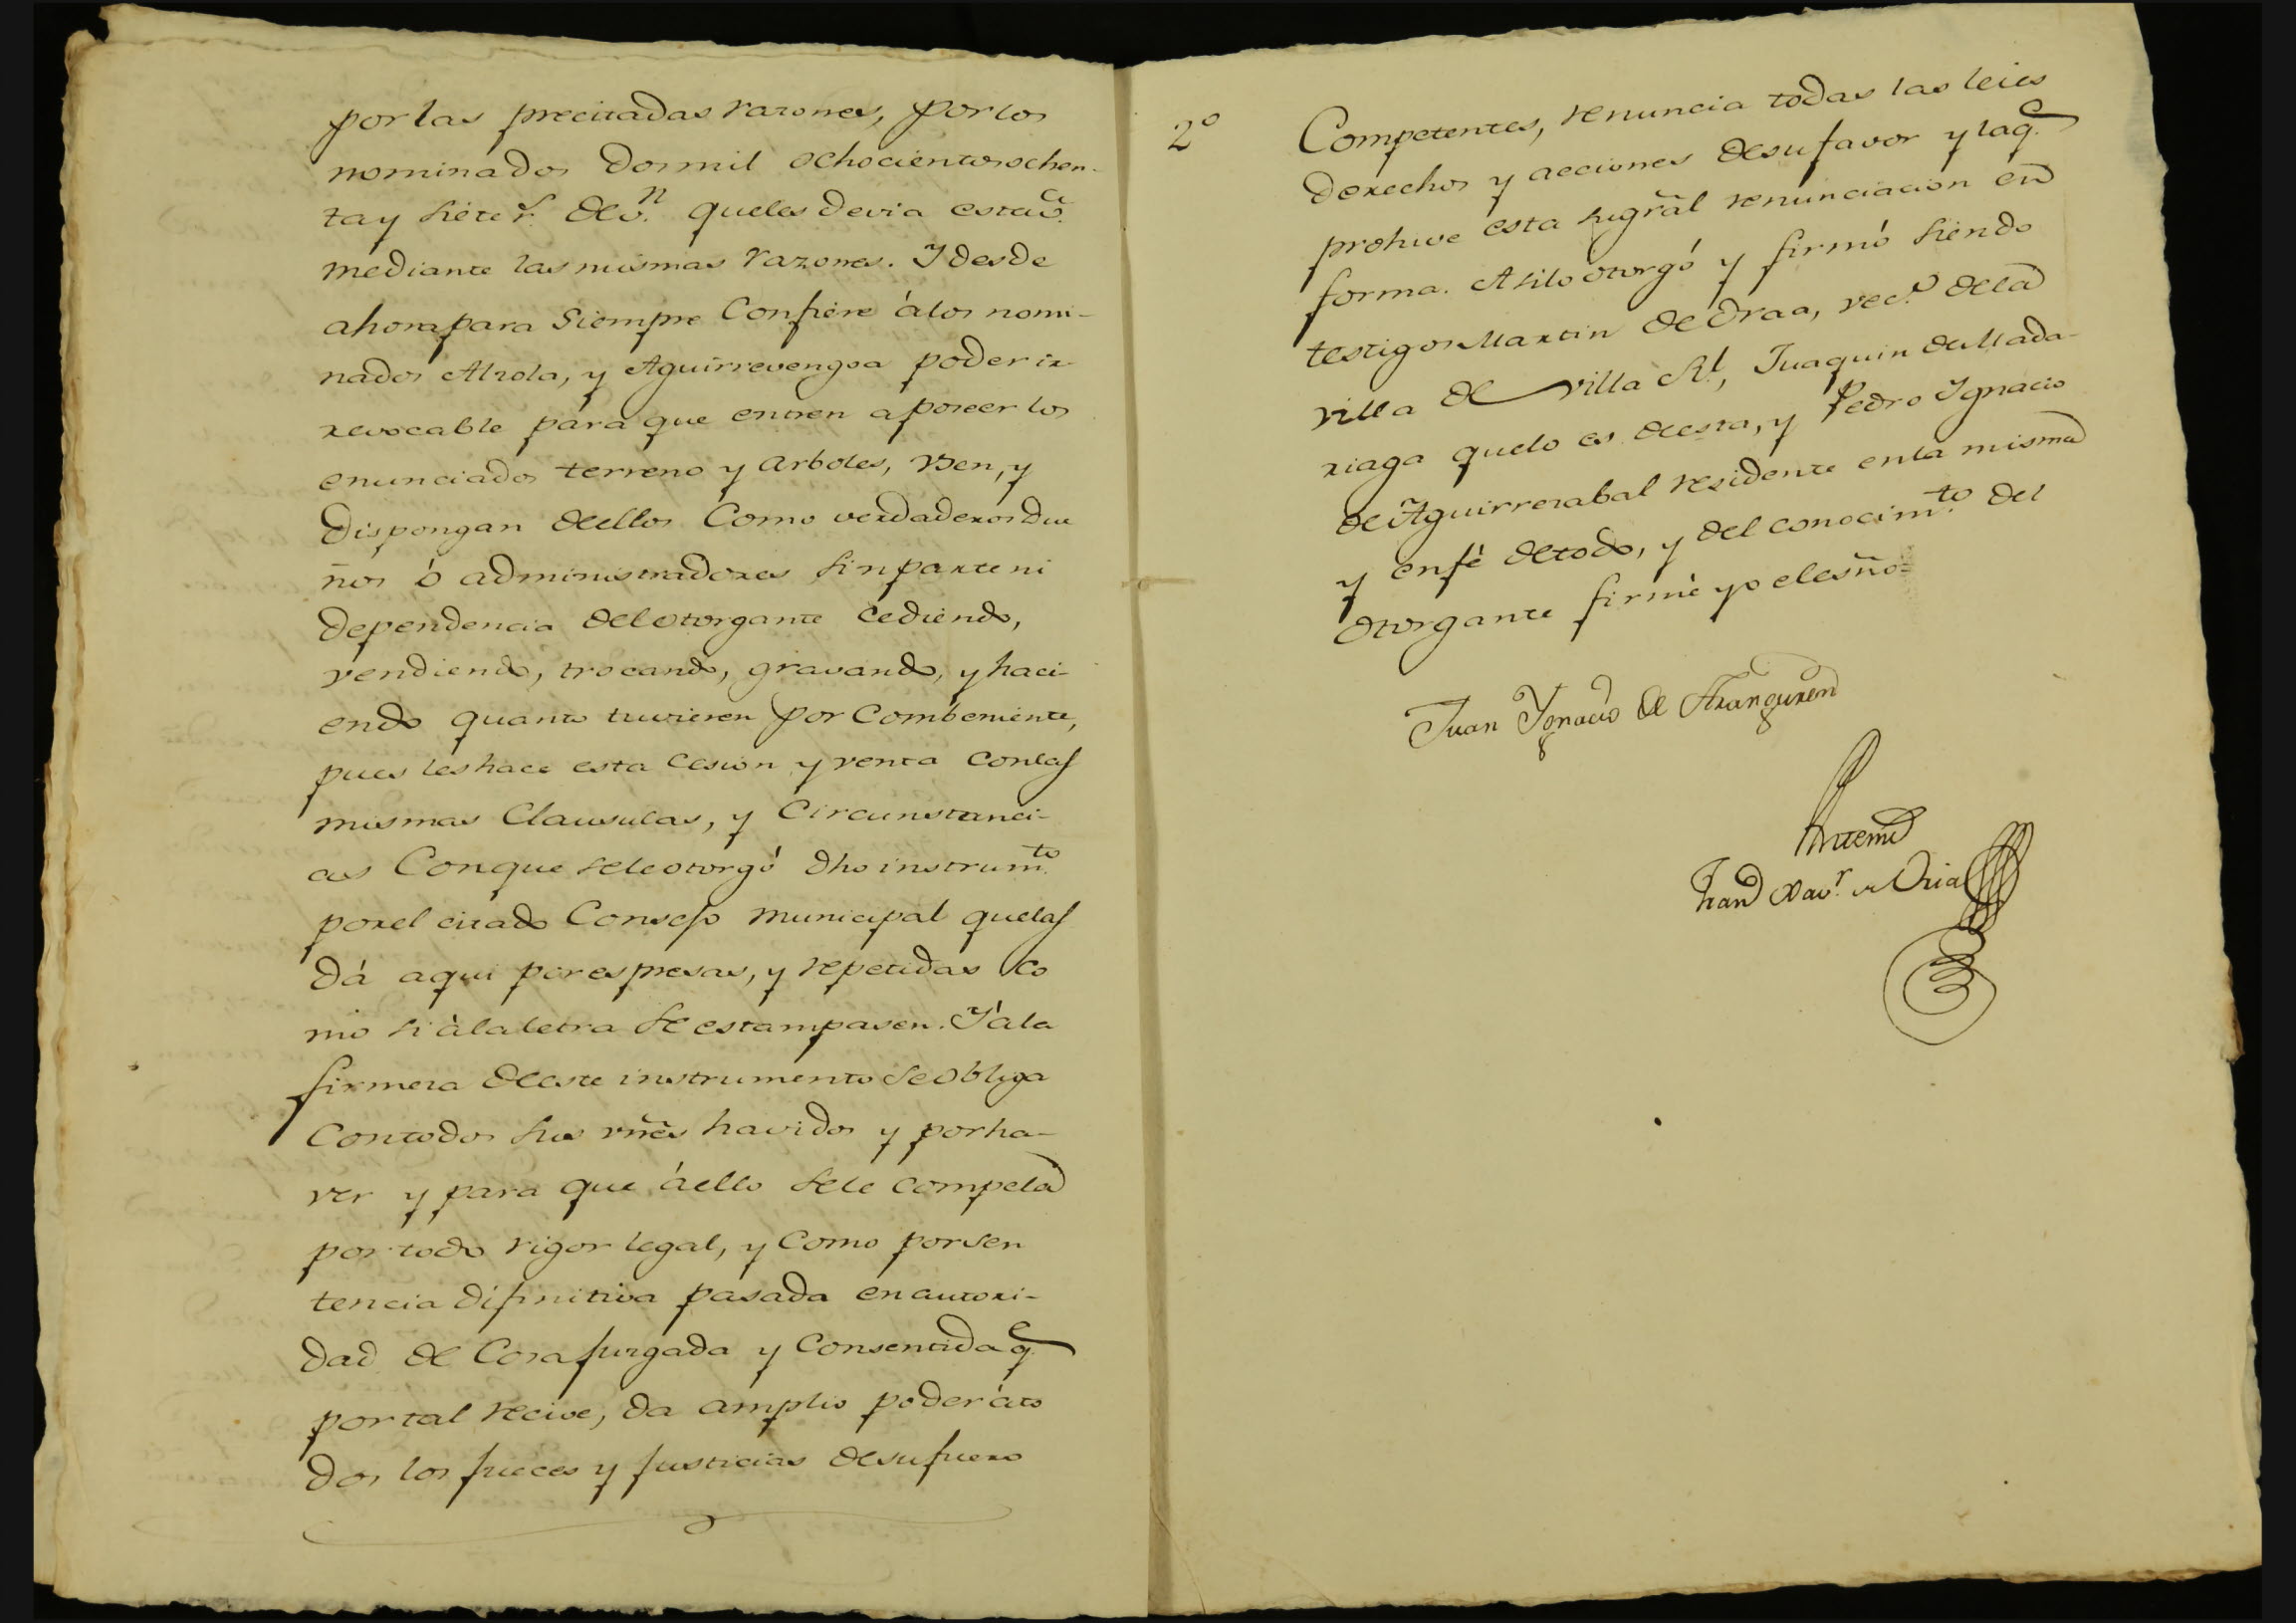 por las precitadas razones, por los
nominados dos mil ochocientos ochen-
ta y siete r.^s de v.^n que les devia este 
mediante las mismas razones. I desde
ahora para siempre confiere á los nomi-
nados Alzola, y Aguirrevengoa poder ir-
revocable para que entren a poseer los
enunciados terreno y arboles, vsen, y
dispongan de ellos como verdaderos due
ños ó administradores sin parte ni
dependencia del otorgante cediendo,
vendiendo, trocando, gravando, y haci-
endo quanto tuvieren por combeniente,
pues les hace esta cesion y venta con las
mismas clausulas, y circunstanci-
as con que se le otorgó dho instrum.^to
por el citado Consejo municipal que las
dá aqui por espresas, y repetidas co
mo si à la letra se estampasen. I á la
firmeza de este instrumento se obliga
con todos sus vñes havidos y por ha-
ver y para que á ello se le compela
por todo rigor legal, y como por sen
tencia difinitiva pasada en autori-
dad de cosa juzgada y consentida q.^e
por tal recive, da amplio poder á to
dos los jueces y justicias de su fuero
2º
Competentes, renuncia todas las leies
derechos y acciones de su favor y la q.^e
prohive esta su grãl renunciacion en
forma. Asi lo otorgó y firmó siendo
testigos Martin de Oraa, vec.^o de la
villa de Villa R.^l, Juaquin de Mada-
riaga que lo es de esta, y Pedro Ignacio
de Aguirrezabal residente en la misma
y en fé de todo, y del conocim.^to del
otorgante firmé yo el esño=
Juan Ygnacio de Aranguren
Ante mi
Fran Xav.^r de Oria